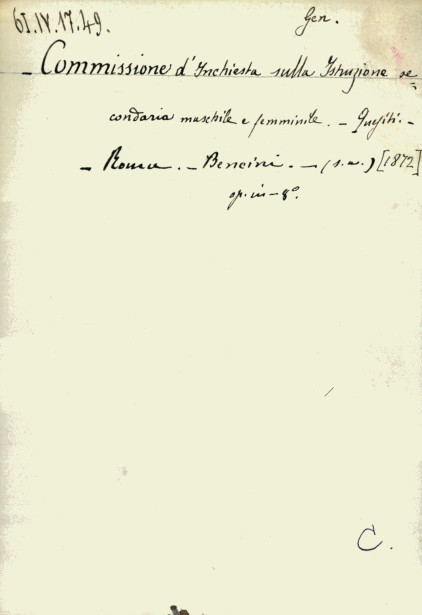 61.IV.17.49.
Gen.
- Commissione d'Inchiesta sulla Istruzione se=
condaria maschile e femminile. - Quesiti. -
- Roma. - Bencini. - (s.a.) [1872]
op. in-8º.
C.